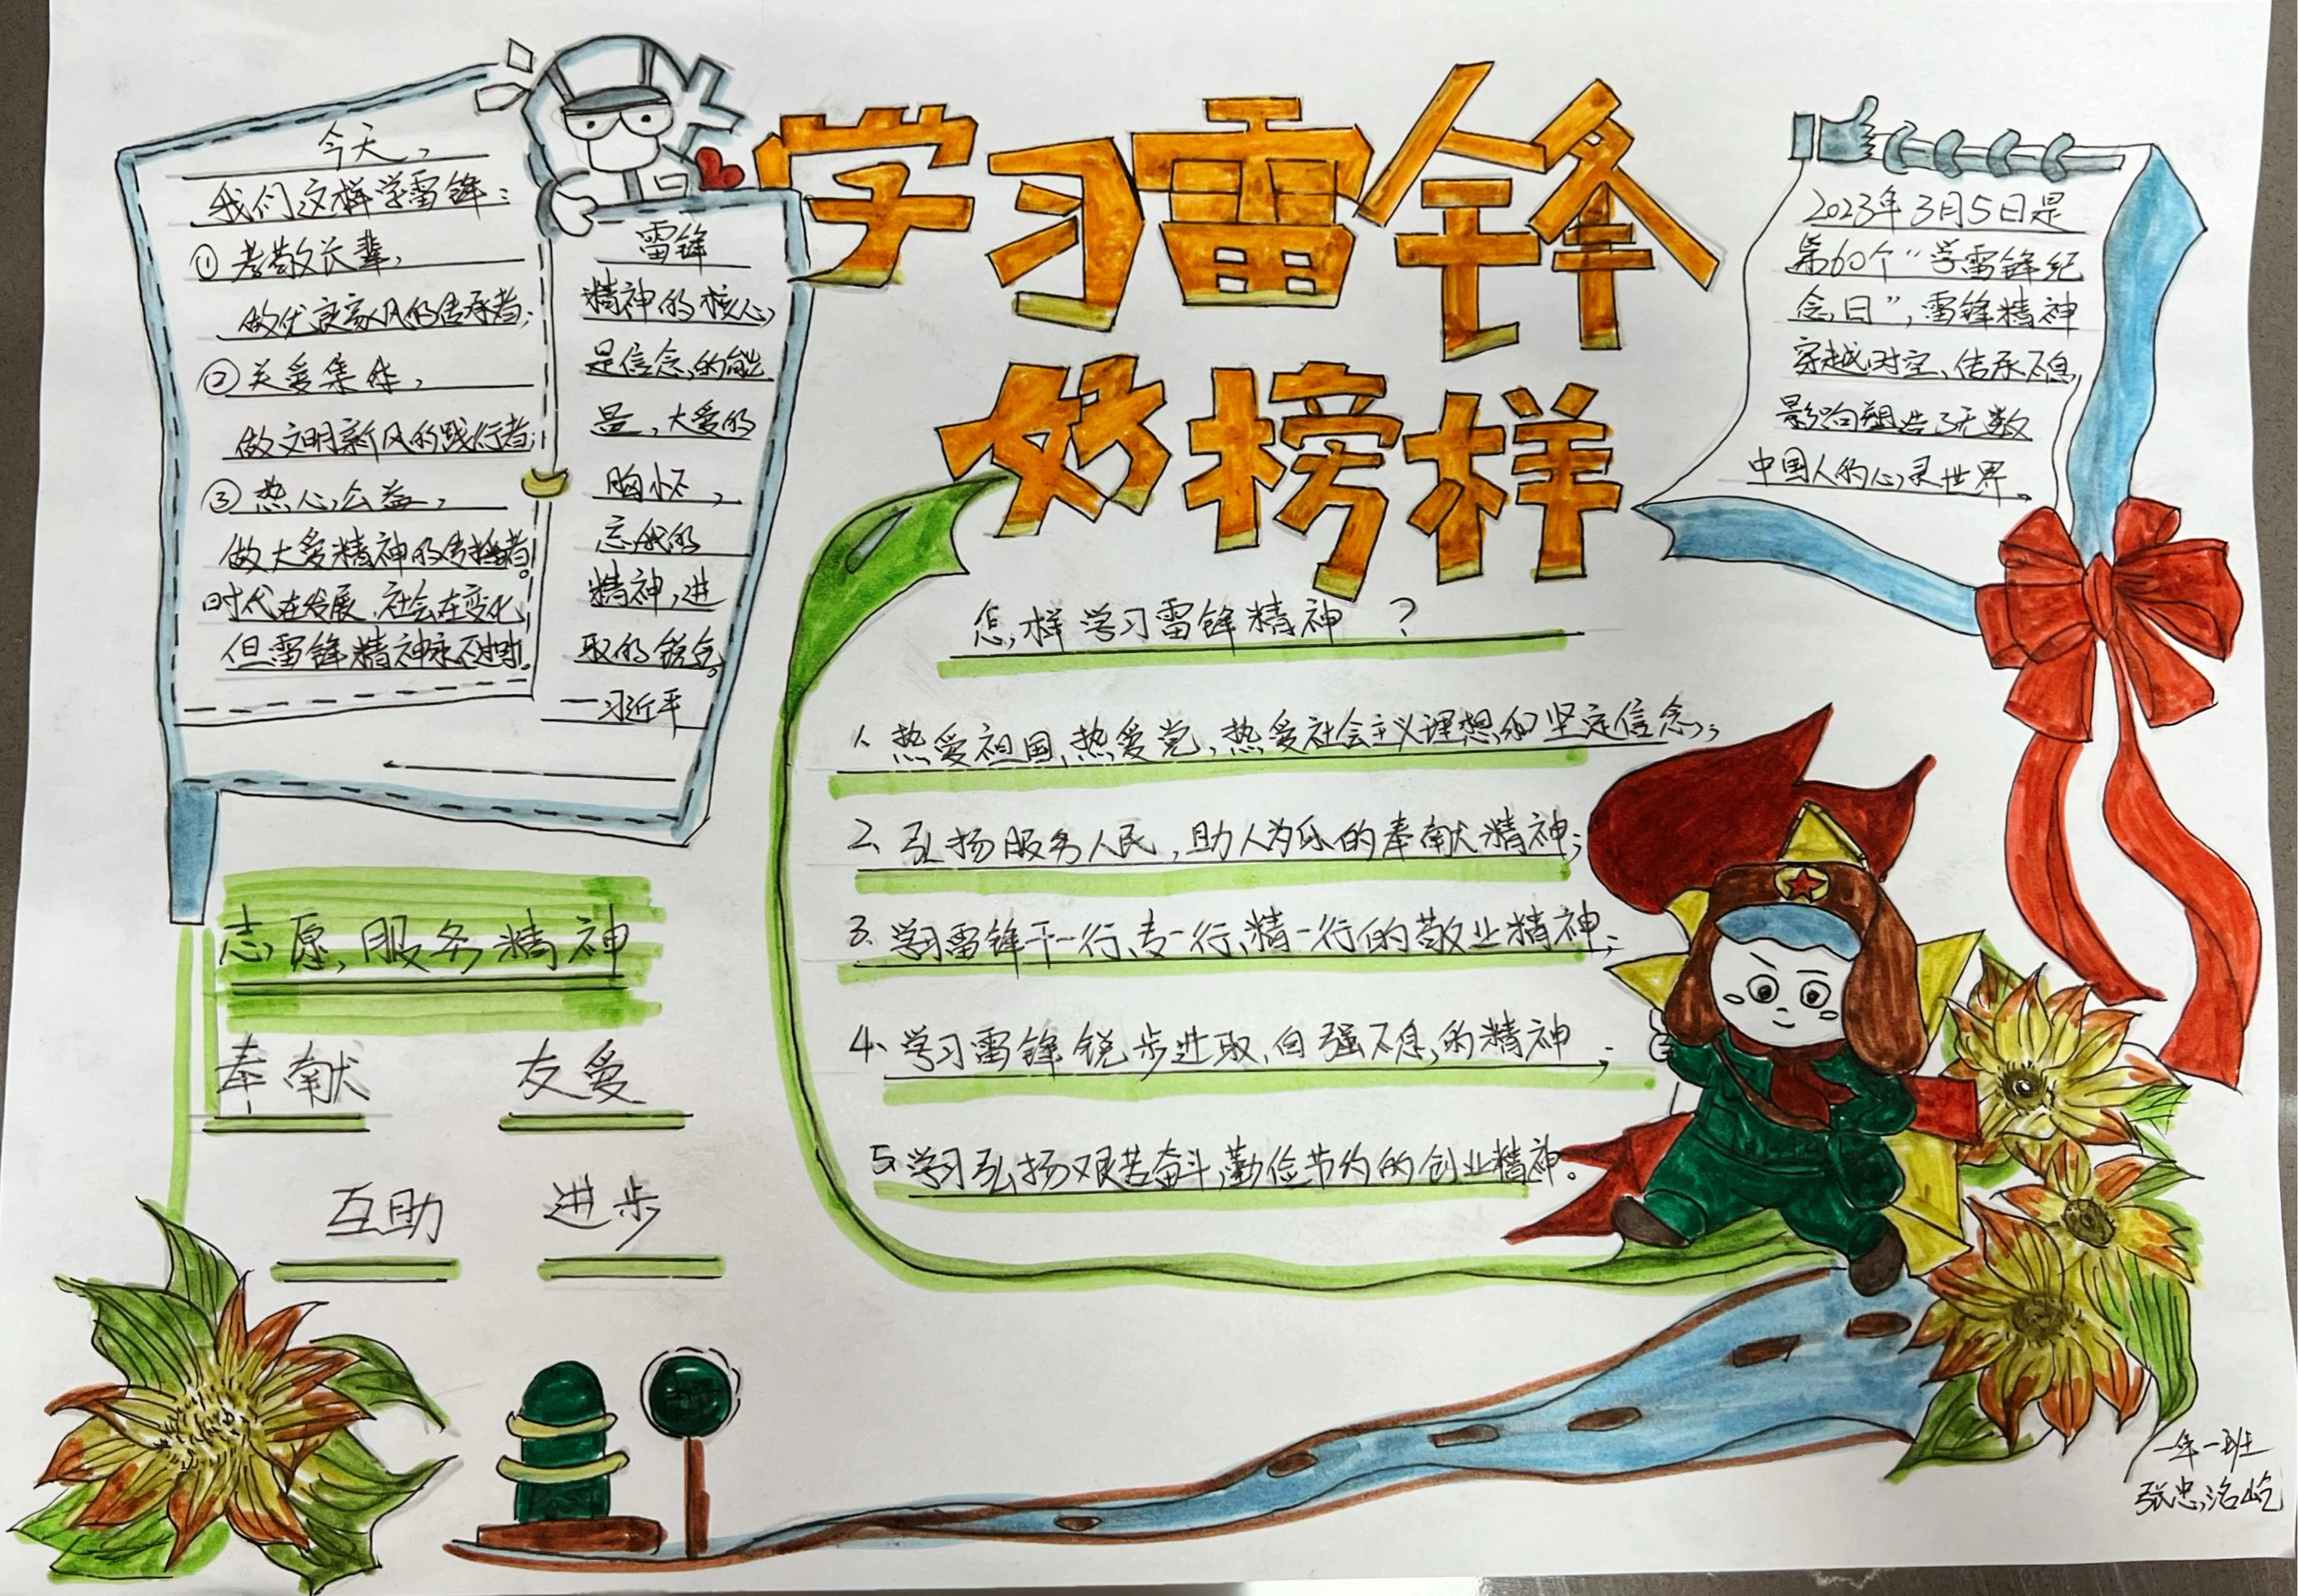 学习雷锋
好榜样
今天，
我们这样学雷锋：
①孝敬长辈，
做优良家风的传承者；
②关爱集体，
做文明新风的践行者；
③热心公益，
做大爱精神的传播者。
时代在发展，社会在变化，
但雷锋精神永不过时。
雷锋
精神的核心，
是信念的能
量，大爱的
胸怀，
忘我的
精神，进
取的锐气。
—习近平
2023年3月5日是
第60个“学雷锋纪
念日”，雷锋精神
穿越时空、传承不息，
影响塑造了无数
中国人的心灵世界。
怎样学习雷锋精神 ？
1、热爱祖国，热爱党，热爱社会主义理想和坚定信念；
2、弘扬服务人民，助人为乐的奉献精神；
3、学习雷锋干一行、专一行、精一行的敬业精神；
4、学习雷锋锐步进取，自强不息的精神；
5、学习弘扬艰苦奋斗，勤俭节约的创业精神。
志愿服务精神
奉献 友爱
互助 进步
一年一班
张忠洺屹